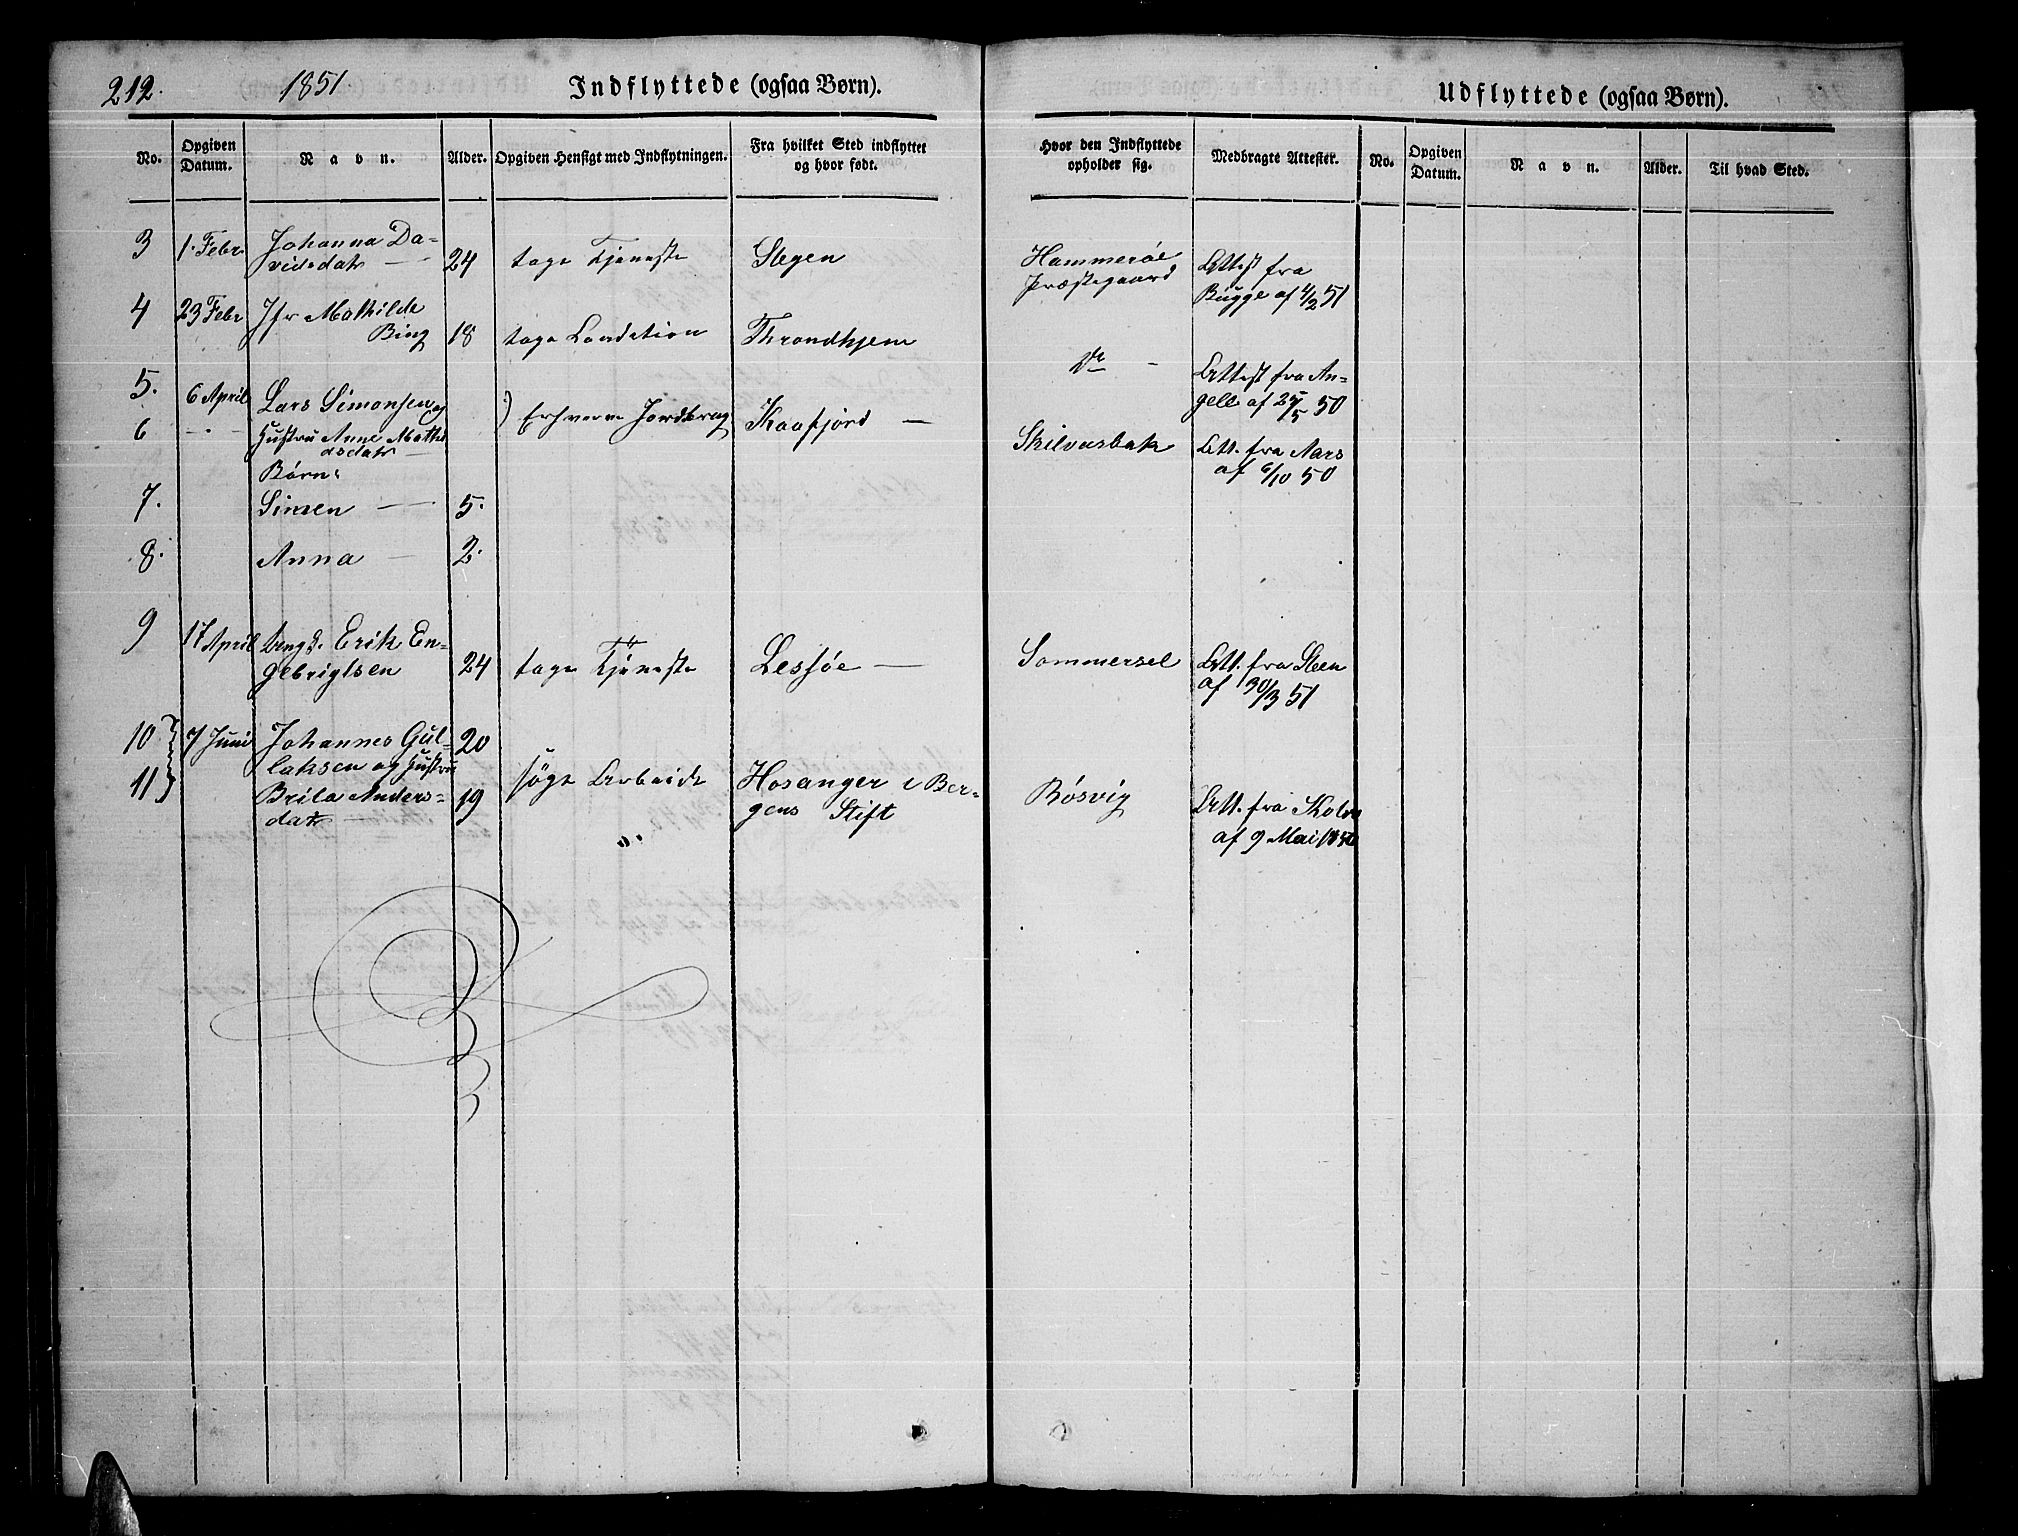 212.
1851.
Indflyttede (ogsaa Børn).
No.
Opgiven Datum.
Navn.
Alder.
Opgiven Hensigt med Indflytningen.
Fra hvilket Sted indflyttet og hvor født.
3
1. Febr
Johanna Da-
vidsdatr
24
tage Tjeneste
Stegen
4
23 Febr
Jfr Mathilde
Bing
18
tage Condition
Throndhjem
5.
6 April
Lars Simonsen og
Erhverve Jordbrug
Kaafjord —
6
Hustru Anne Mathi
asdatr
Børn:
7.
Simen —
5.
8.
Anna —
2.
9
17 April
Ungk. Erik En-
gebrigtsen
24
tage Tjeneste
Lessøe —
10
7 Juni
Johannes Gul-
20
laksen og Hustru
11
Brita Anders-
19
datr
søge Arbeide
Hosanger i Ber-
gens Stift
„
Udflyttede (ogsaa Børn).
Hvor den Indflyttede opholder sig.
Medbragte Attester.
No.
Opgiven Datum.
Navn.
Alder.
Til hvad Sted.
Hammerøe
Præstegaard
Attest fra
Bugge af 4/2 51
Do —
Attest fra An-
gell af 25/5 50
Skilvasbak
Att. fra Aars
af 6/10 50
Sommersel
Att. fra Steen
af 30/3 51
Bösvig
Att. fra
af 9 Mai